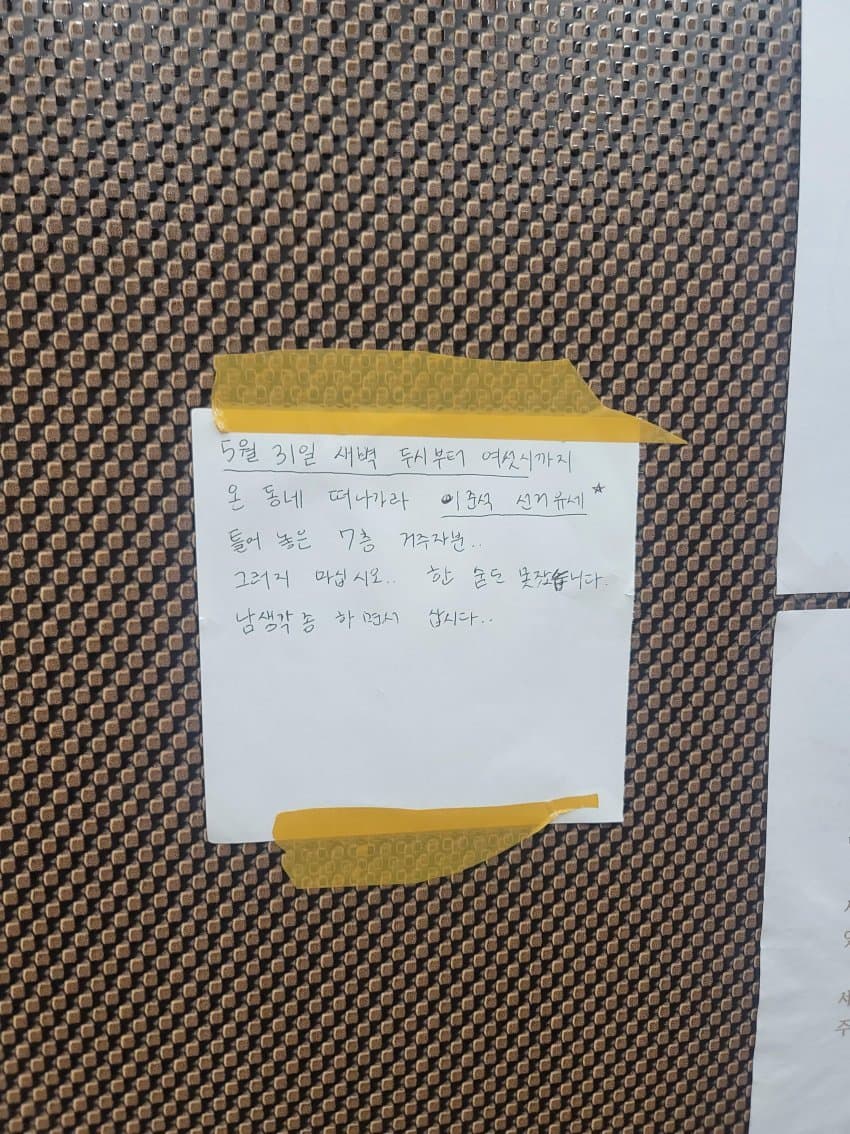 5월 31일 새벽 두시부터 여섯시까지
온 동네 떠나가라 이준석 선거유세☆
틀어 놓은 7층 거주자분..
그러지 마십시오.. 한 숨도 못잤습니다.
남생각 좀 하면서 삽시다..
세
주